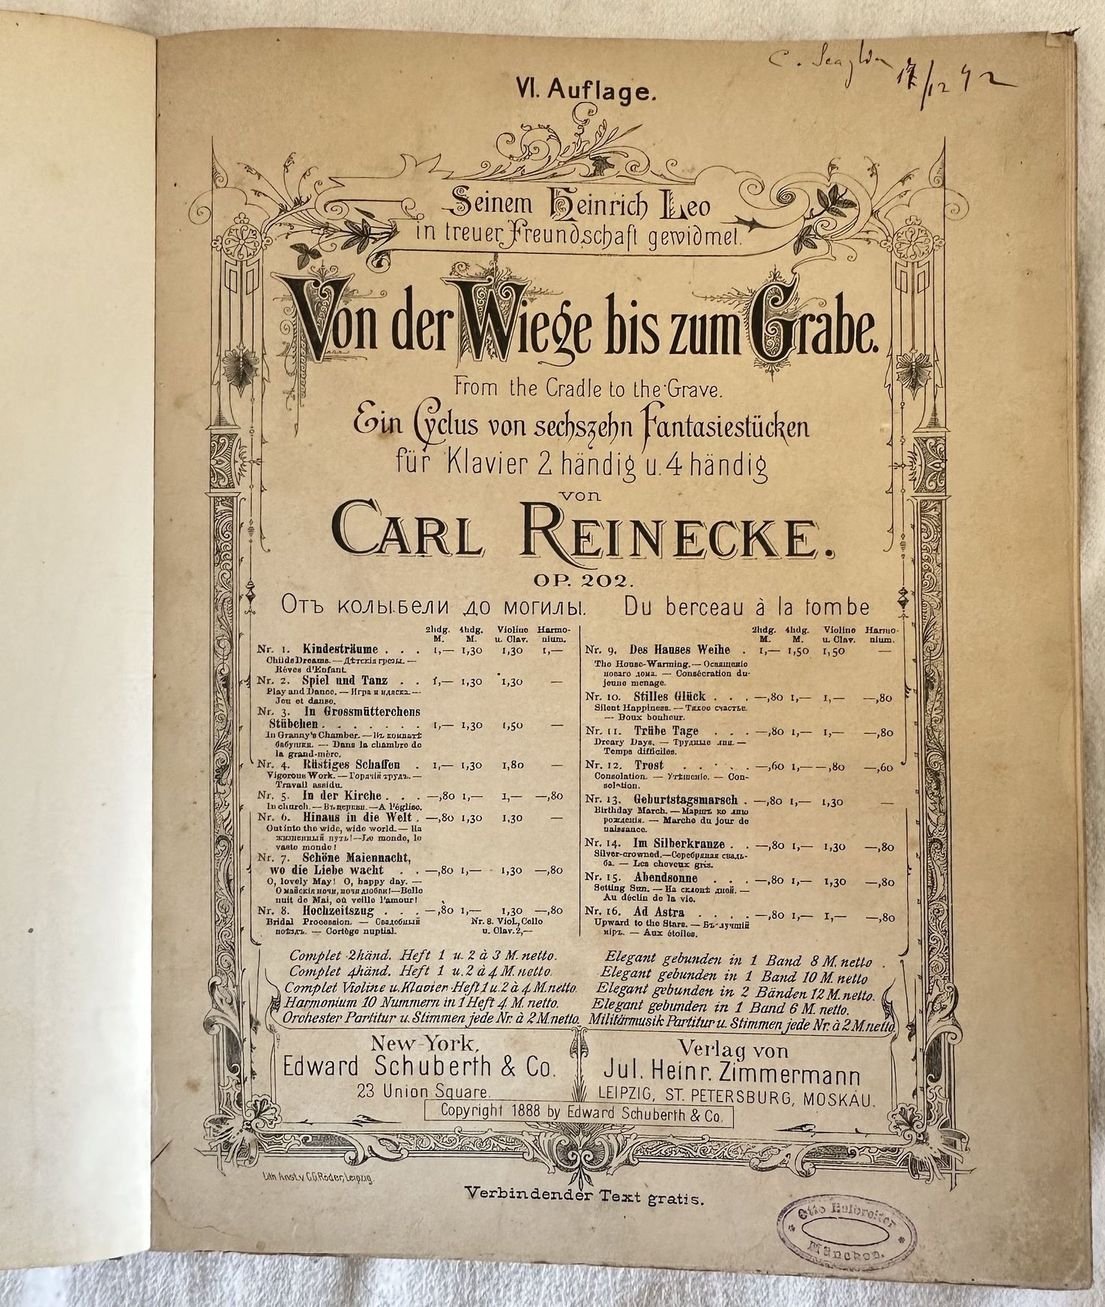 C.
12 92
VI. Auflage.
Seinem Heinrich Leo
in treuer Freundschaft gewidmet.
Von der Wiege bis zum Grabe.
From the Cradle to the Grave.
Ein Cyclus von sechszehn Fantasiestücken
für Klavier 2 händig u. 4 händig
von
CARL REINECKE.
OP. 202.
Отъ колыбели до могилы. Du berceau à la tombe
2hdg. 4hdg. Violine Harmo-
M. M. u. Clav. nium.
Nr. 1. Kindesträume . . . 1,— 1,30 1,30 1,—
Childs Dreams. — Дѣтскія грезы. —
Rêves d'Enfant.
Nr. 2. Spiel und Tanz . . 1,— 1,30 1,30 —
Play and Dance. — Игра и пляска. —
Jeu et danse.
Nr. 3. In Grossmütterchens
Stübchen . . . . . . 1,— 1,30 1,50 —
In Granny's Chamber. — Въ комнатѣ
бабушки. — Dans la chambre de
la grand-mère.
Nr. 4. Rüstiges Schaffen . 1,— 1,30 1,80 —
Vigorous Work. — Горячій трудъ. —
Travail assidu.
Nr. 5. In der Kirche . . . —,80 1,— 1,— —,80
In church. — Въ церкви. — A l'église.
Nr. 6. Hinaus in die Welt . —,80 1,30 1,30 —
Out into the wide, wide world. — На
жизненный путь! — Le monde, le
vaste monde!
Nr. 7. Schöne Maiennacht,
wo die Liebe wacht . . —,80 1,— 1,30 —,80
O, lovely May! O, happy day. —
О майскія ночи, ночи любви! — Belle
nuit de Mai, où veille l'amour!
Nr. 8. Hochzeitszug . . . —,80 1,— 1,30 —,80
Bridal Procession. — Свадебный Nr. 8. Viol., Cello
поѣздъ. — Cortège nuptial. u. Clav. 2,—
2hdg. 4hdg. Violine Harmo-
M. M. u. Clav. nium.
Nr. 9. Des Hauses Weihe . 1,— 1,50 1,50 —
The House-Warming. — Освященіе
новаго дома. — Consécration du
jeune menage.
Nr. 10. Stilles Glück . . . —,80 1,— 1,— —,80
Silent Happiness. — Тихое счастье.
— Doux bonheur.
Nr. 11. Trübe Tage . . . —,80 1,— 1,— —,80
Dreary Days. — Трудные дни. —
Temps difficiles.
Nr. 12. Trost . . . . . —,60 1,— —,80 —,60
Consolation. — Утѣшеніе. — Con-
solation.
Nr. 13. Geburtstagsmarsch . —,80 1,— 1,30 —
Birthday March. — Маршъ ко дню
рожденія. — Marche du jour de
naissance.
Nr. 14. Im Silberkranze . . —,80 1,— 1,30 —,80
Silver-crowned. — Серебряная свадь-
ба. — Les cheveux gris.
Nr. 15. Abendsonne . . . —,80 1,— 1,30 —,80
Setting Sun. — На склонѣ дней. —
Au déclin de la vie.
Nr. 16. Ad Astra . . . . —,80 1,— 1,— —,80
Upward to the Stars. — Въ лучшій
міръ. — Aux étoiles.
Complet 2händ. Heft 1 u. 2 à 3 M. netto. Elegant gebunden in 1 Band 8 M. netto.
Complet 4händ. Heft 1 u. 2 à 4 M. netto. Elegant gebunden in 1 Band 10 M. netto
Complet Violine u. Klavier Heft 1 u. 2 à 4 M. netto. Elegant gebunden in 2 Bänden 12 M. netto.
Harmonium 10 Nummern in 1 Heft 4 M. netto. Elegant gebunden in 1 Band 6 M. netto.
Orchester Partitur u. Stimmen jede Nr. à 2 M. netto. Militärmusik Partitur u. Stimmen jede Nr. à 2 M. netto
New-York.
Edward Schuberth & Co.
23 Union Square.
Verlag von
Jul. Heinr. Zimmermann
LEIPZIG, ST. PETERSBURG, MOSKAU.
Copyright 1888 by Edward Schuberth & Co.
Lith. Anst. v. C.G. Röder, Leipzig.
Verbindender Text gratis.
Otto Halbreiter
München.